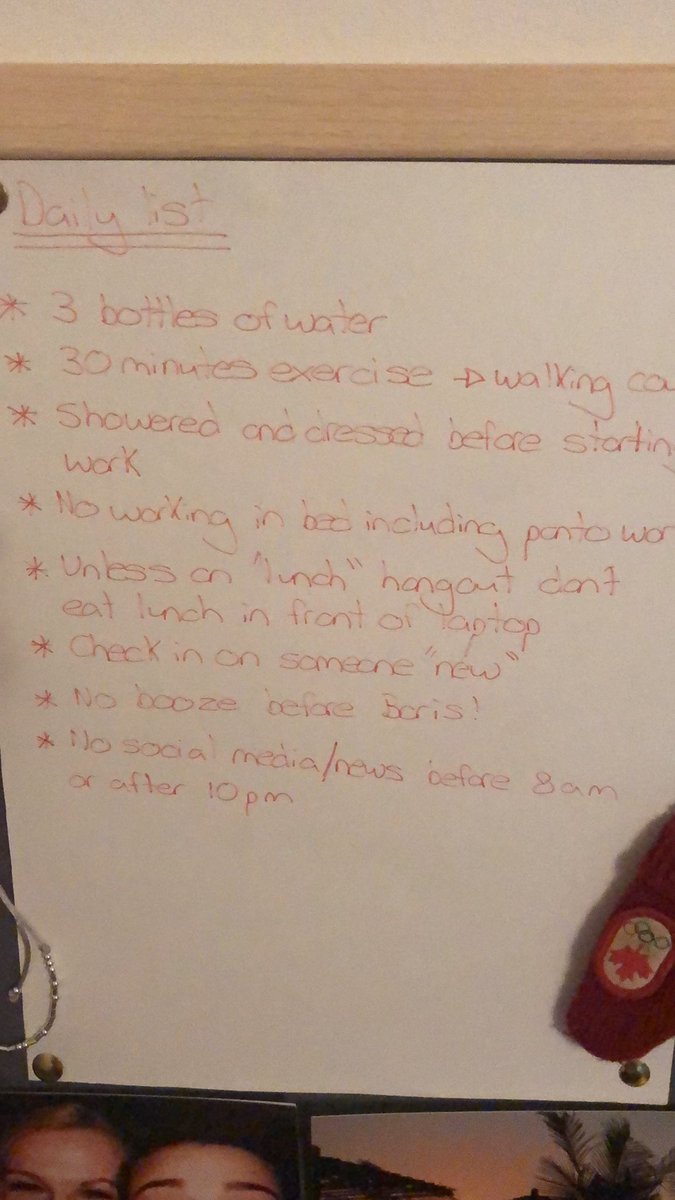 Daily list
* 3 bottles of water
* 30 minutes exercise → walking cou
* Showered and dressed before starting
work
* No working in bed including panto wor
* Unless on "lunch" hangout don't
eat lunch in front of laptop
* Check in on someone "new"
* No booze before Boris!
* No social media/news before 8am
or after 10pm